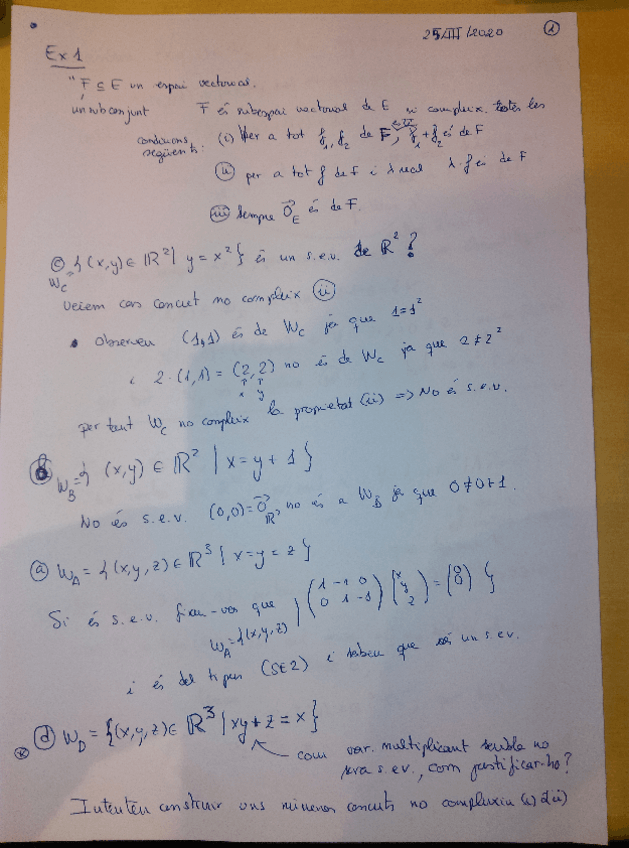 25/III/2020 ①
Ex 1
"F ⊆ E un espai vectorial.
un subconjunt F és subespai vectorial de E si compleix totes les
condicions següents: (i) Per a tot f₁, f₂ de F, f₁+f₂ és de F
(ii) per a tot f de F i λ real λ·f és de F
(iii) Sempre 0⃗_E és de F.
(c) W_C = {(x,y) ∈ ℝ² | y = x²} és un s.e.v. de ℝ²?
Veiem cas concret no compleix (ii)
• Observeu (1,1) és de W_C ja que 1=1²
i 2·(1,1) = (2,2) no és de W_C ja que 2≠2²
x y
per tant W_C no compleix la propietat (ii) => No és s.e.v.
(b) W_B = {(x,y) ∈ ℝ² | x = y + 1}
No és s.e.v. (0,0) = 0⃗_ℝ² no és a W_B ja que 0≠0+1.
(a) W_A = {(x,y,z) ∈ ℝ³ | x=y=z}
Sí és s.e.v. fixeu-vos que
W_A = {(x,y,z) | (1 -1 0; 0 1 -1) (x; y; z) = (0; 0)}
i és del tipus (SE2) i sabeu que és un s.e.v.
* (d) W_D = {(x,y,z) ∈ ℝ³ | xy+z = x}
com var. multiplicant sembla no
serà s.e.v., com justificar-ho?
Intenteu construir uns números concrets no compleixin (i) o (ii)